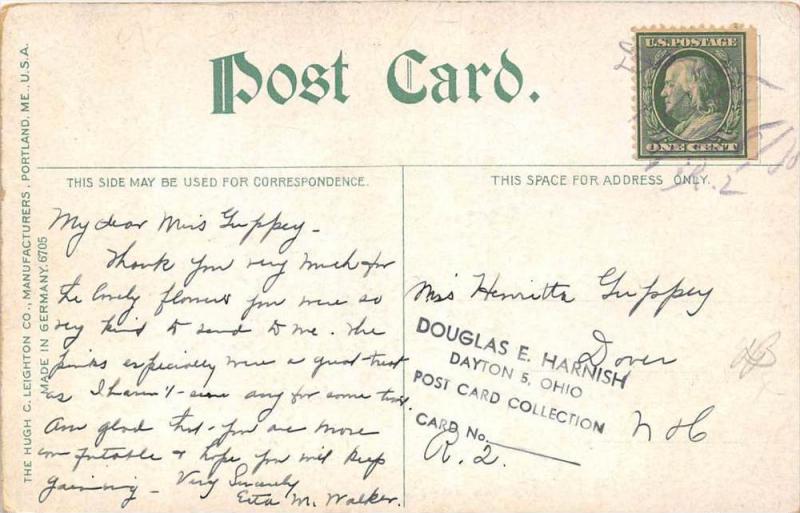 Post Card.
U.S. POSTAGE
ONE CENT
R. 2
THIS SIDE MAY BE USED FOR CORRESPONDENCE.
THIS SPACE FOR ADDRESS ONLY.
THE HUGH C. LEIGHTON CO., MANUFACTURERS, PORTLAND, ME., U.S.A.
MADE IN GERMANY. 6705
My dear Miss Guppey -
Thank you very much for
the lovely flowers you were so
very kind to send to me. The
pinks especially were a great treat
as I haven't seen any for some time.
Am glad that you are more
comfortable & hope you will keep
gaining - Very Sincerely
Etta M. Walker.
Miss Henrietta Guppey
Dover
N H
R. 2.
DOUGLAS E. HARNISH
DAYTON 5, OHIO
POST CARD COLLECTION
CARD No.